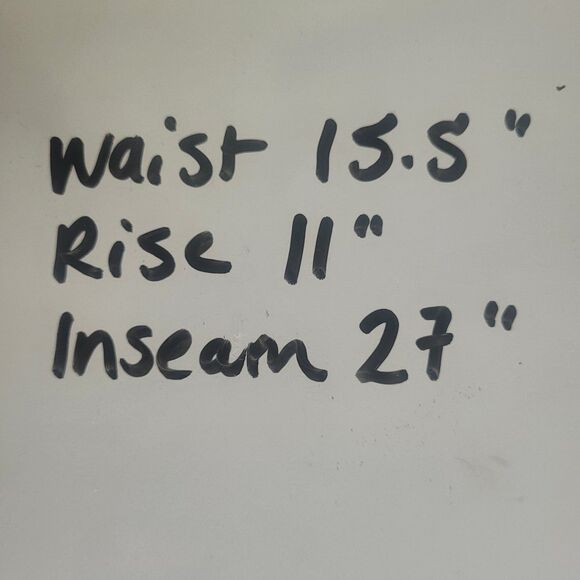 Waist 15.5"
Rise 11"
Inseam 27"